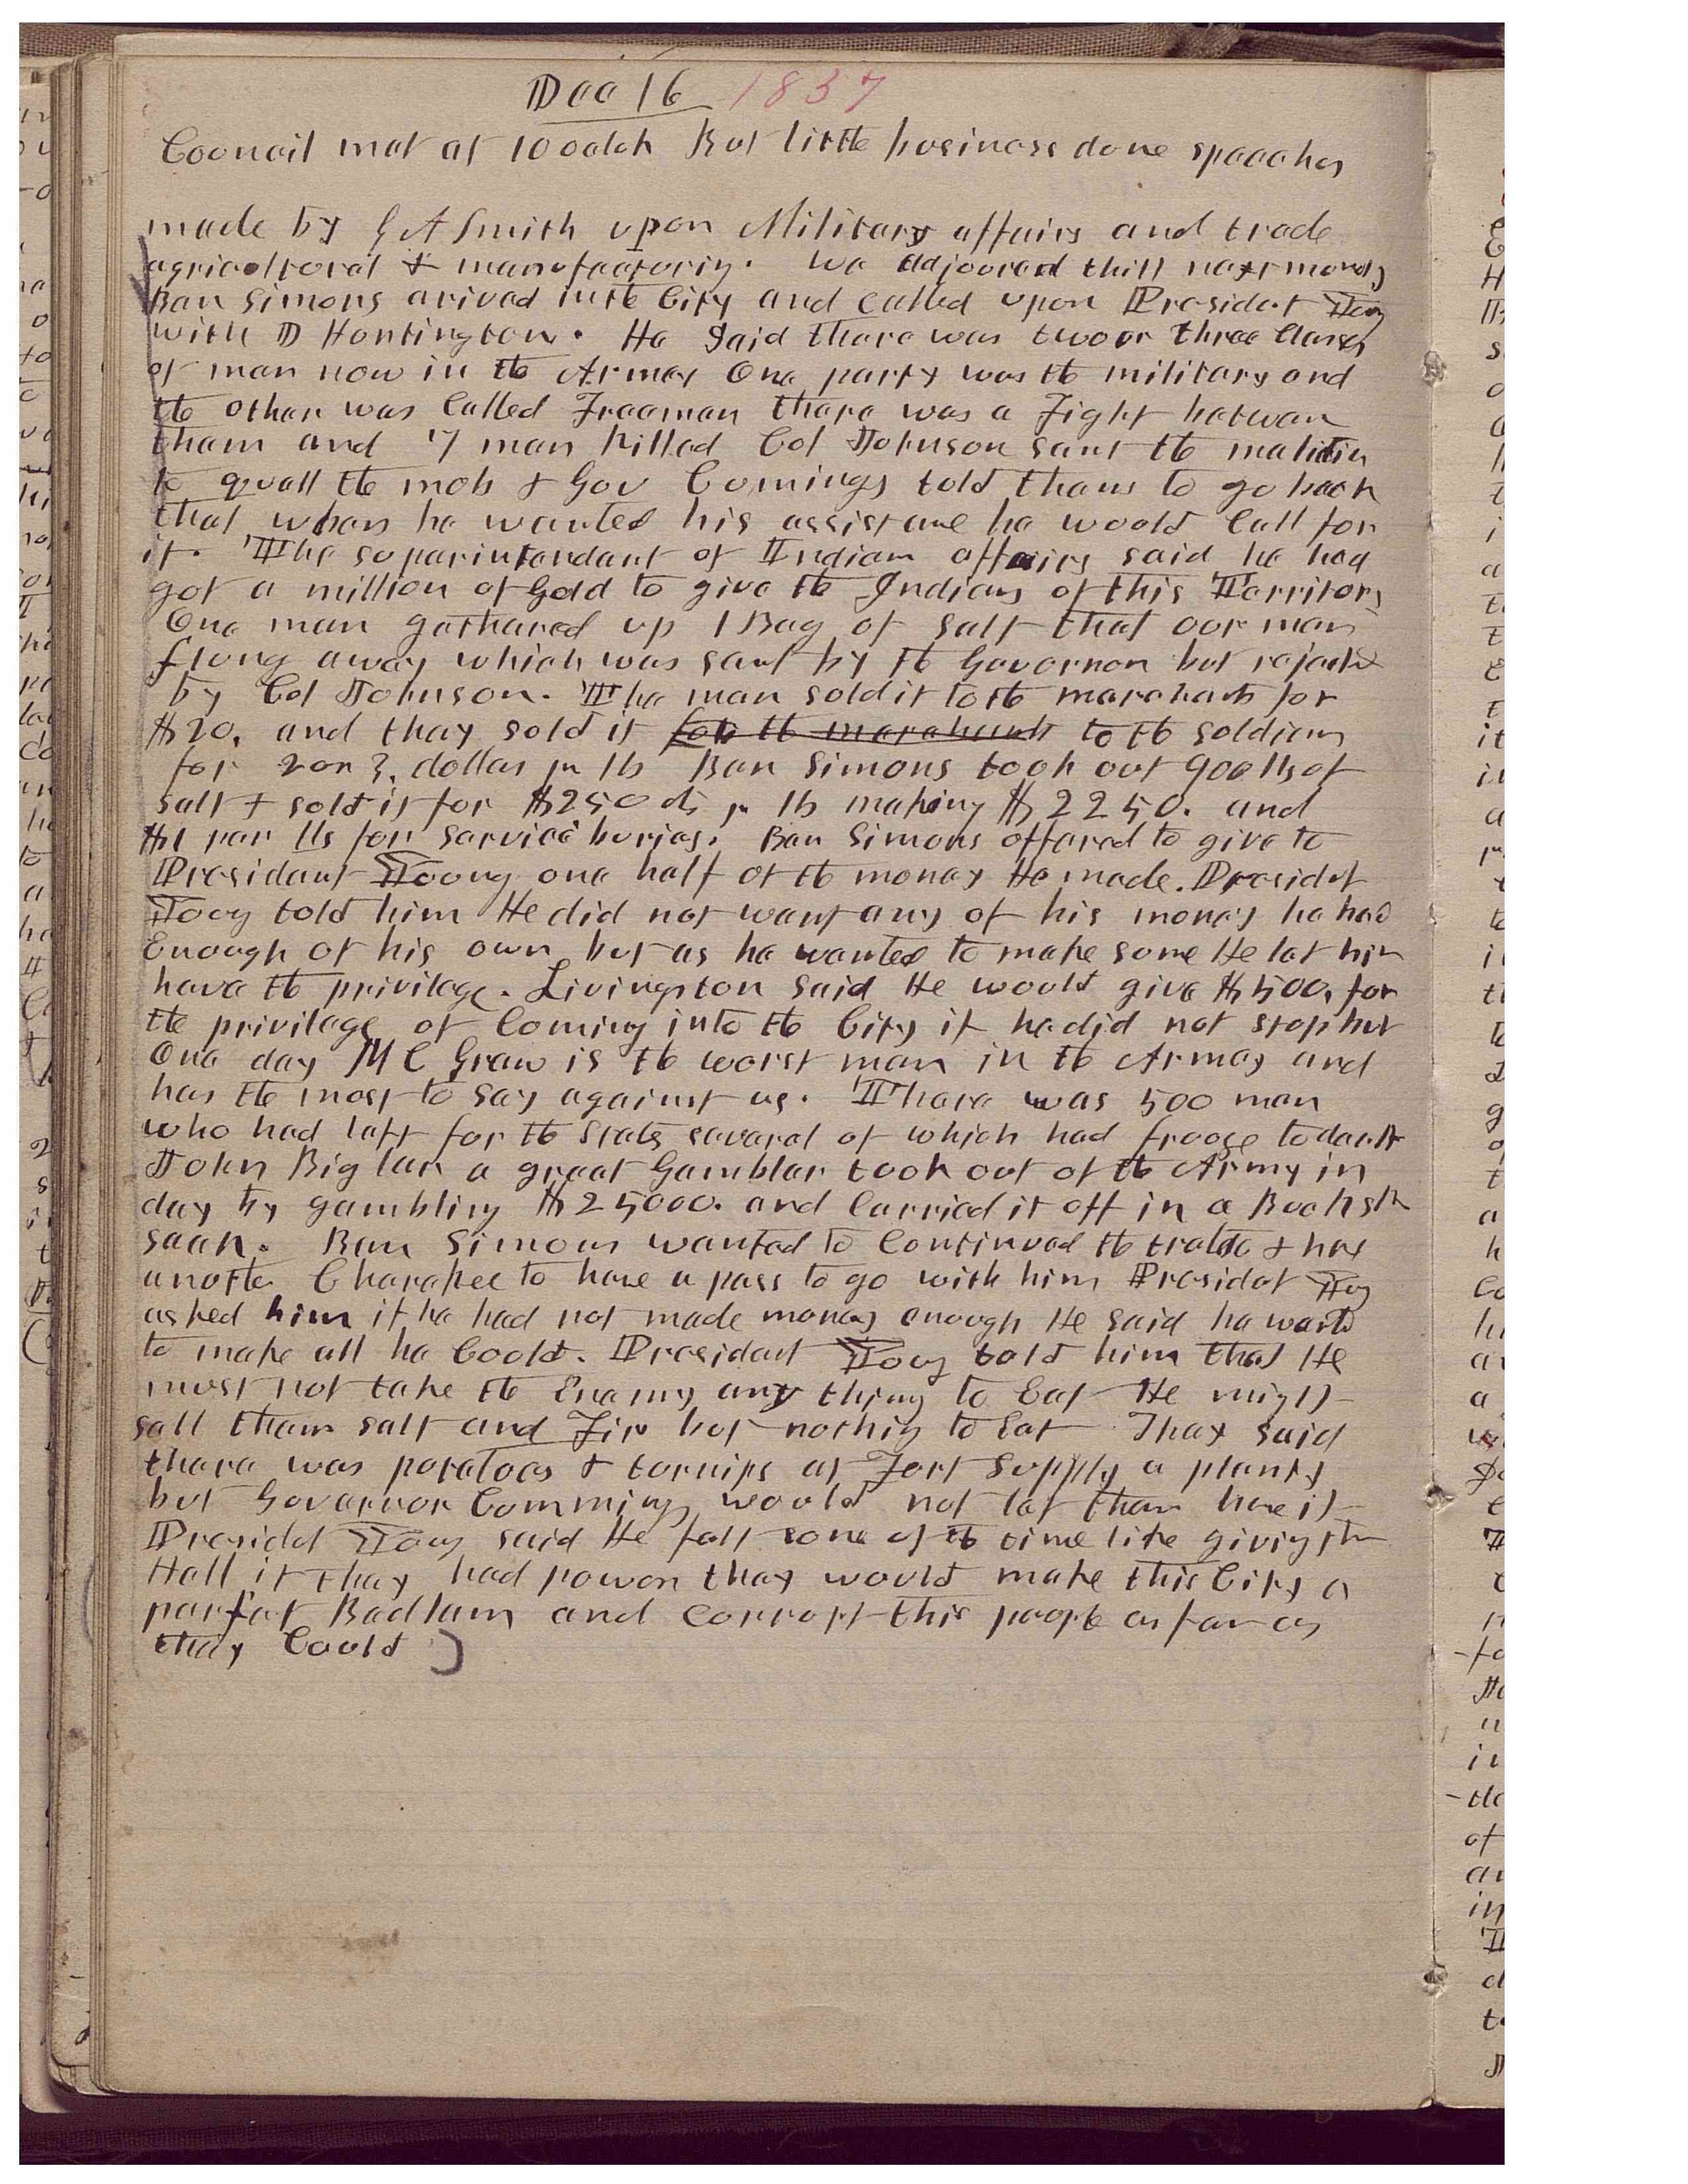 Dec 16 1857
Council met at 10 oclok But little business done speeches
made by G A Smith upon Military affairs and trade
agricultural & manufactoriy. we adjoured thill next monday
Ben Simons arived in the City and called upon President Young
with D Huntington. He said there was two or three Classes
of men now in the Armey One party was the military and
the other was Called Freemen there was a Fight betwen
them and 7 men killed Col Johnson sent the malitia
to quell the mob & Gov Comings told them to go back
that when he wanted his assistane he would Call for
it. The superintendant of Indian affairs said he had
got a million of Gold to give the Indians of this Territory
One man gathered up 1 Bag of salt that our men
flung away which was sent by the Governor but rejected
by Col Johnson. The man sold it to the merchants for
$20, and they sold it for the merchants to the soldiers
for 2 or 3, dollas pr lb Ben Simons took out 900 lbs of
salt & sold it for $250 cts pr lb making $2250. and
$1 per lbs for service buries. Ben Simons offered to give to
President Young one half of the money He made. President
Young told him He did not want any of his money he had
Enough of his own but as he wanted to make some He let him
have the privilege. Livingston said He would give $500, for
the privilege of Coming into the City if he did not stop but
One day Mc Graw is the worst man in the Armey and
has the most to say against us. There was 500 men
who had left for the States several of which had frooze to death
John Bigler a great Gambler took out of the Army in
day by gambling $25000. and Carried it off in a Buck skin
sack. Ben Simons wanted to Continued the trade &
another Cherakee to have a pass to go with him President Young
asked him if he had not made money enough He said he wanted
to make all he Could. President Young told him that He
must not take the Enemy any thing to Eat He might
sell them salt and but nothing to Eat They said
there was potatoes & turnips at Fort Supply a planty
but Governor Comming would not let them have it
President Young said He felt some of the time like giving them
Hell if they had power they would make this City a
perfect Bedlam and Corrupt this people as far as
they Could